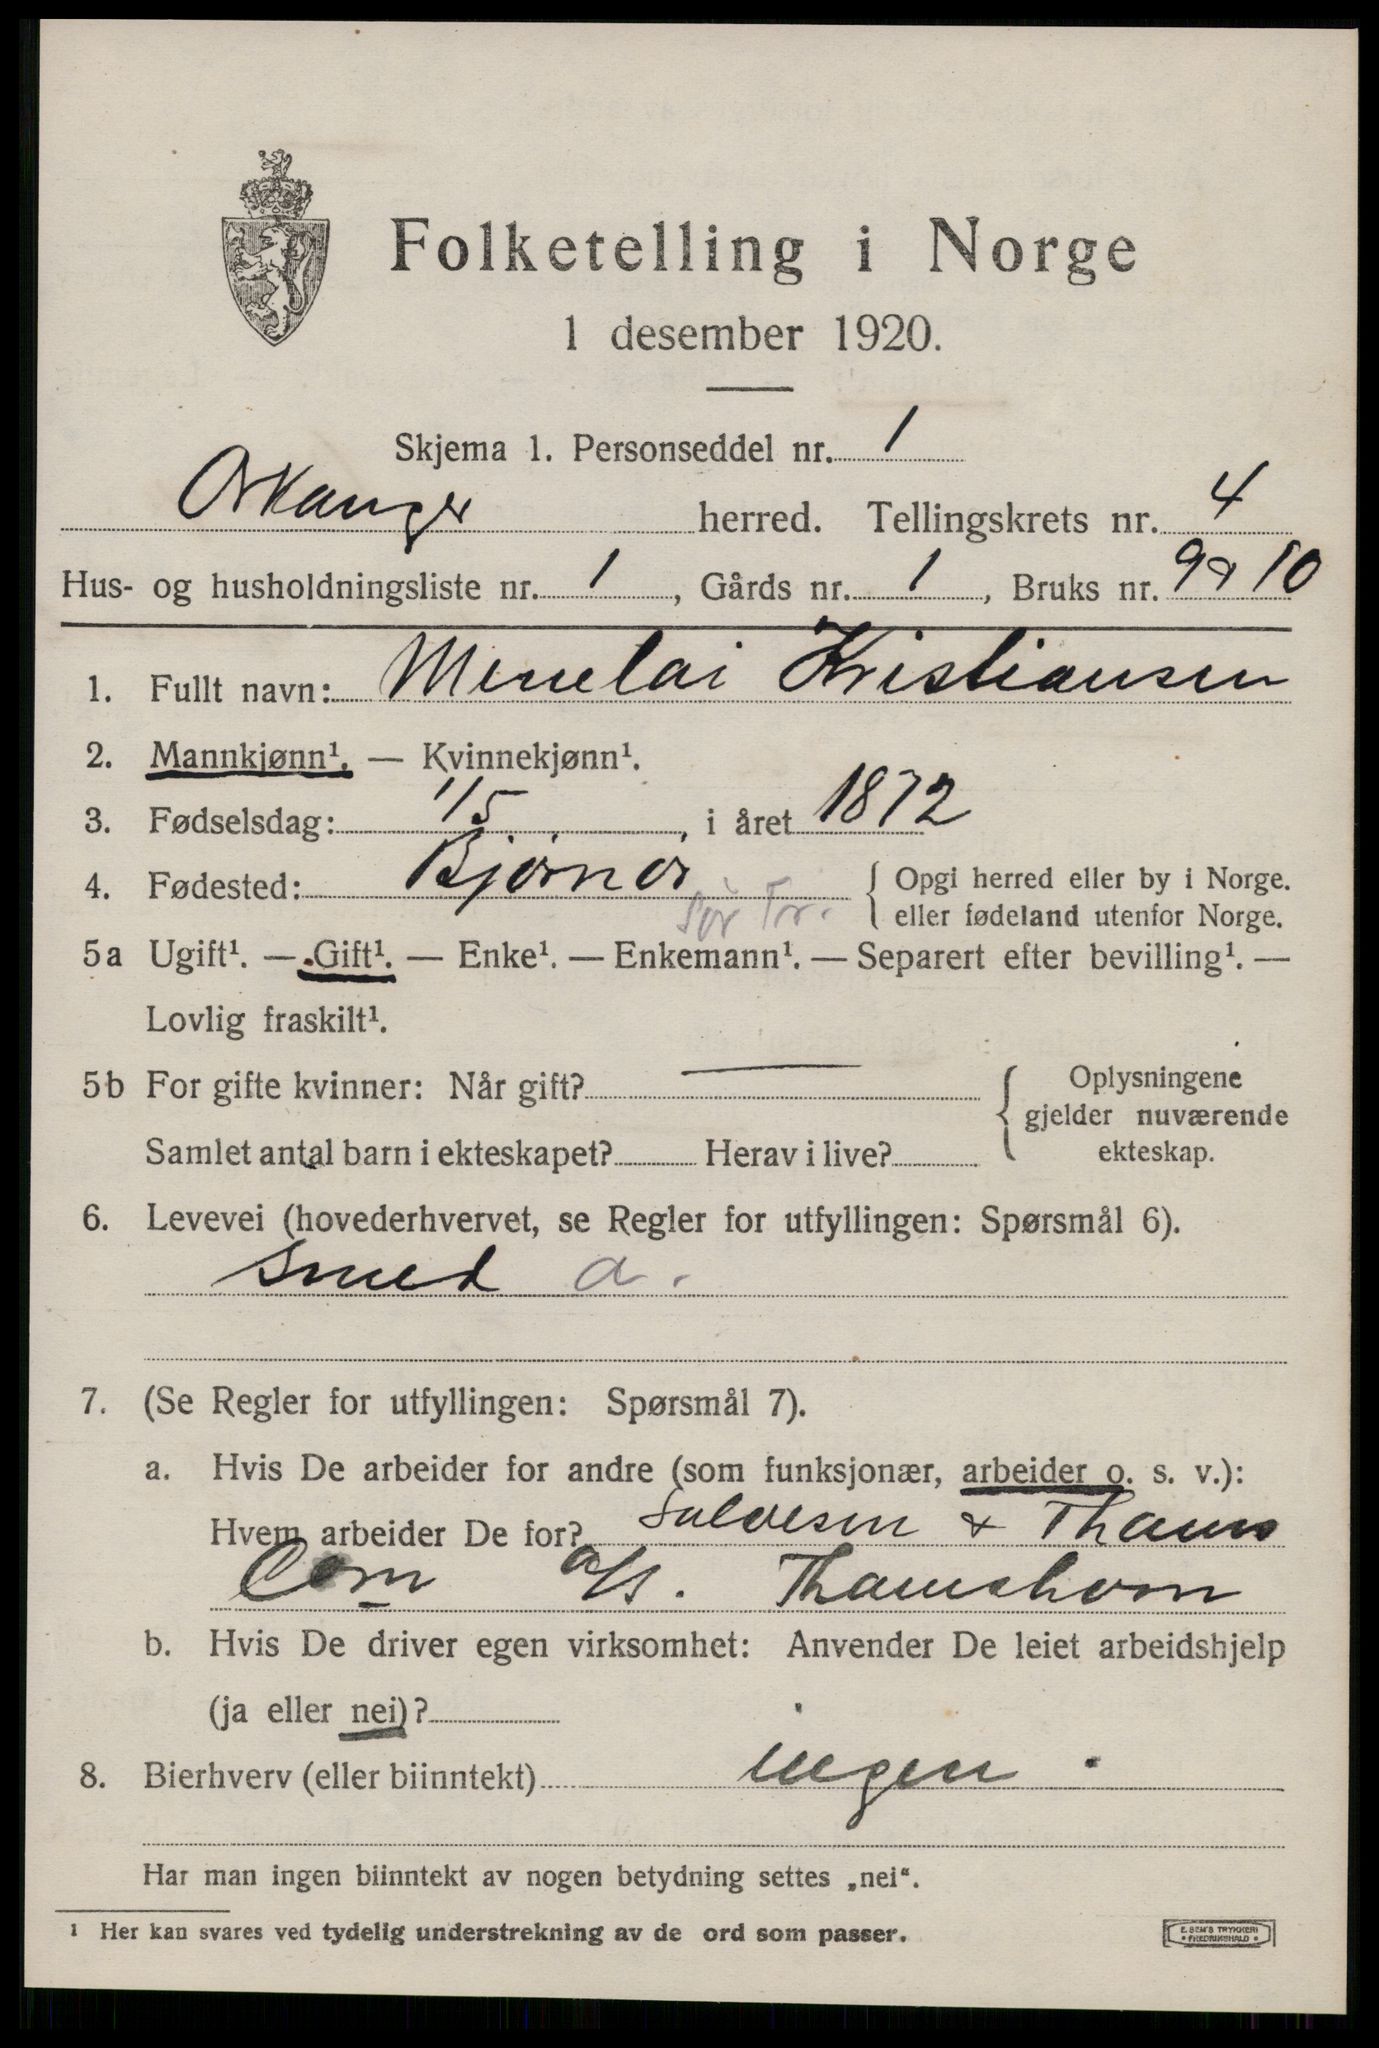 Folketelling i Norge
1 desember 1920.
Skjema 1. Personseddel nr. 1
Orkanger herred. Tellingskrets nr. 4
Hus- og husholdningsliste nr. 1, Gårds nr. 1, Bruks nr. 9 & 10
1. Fullt navn: Menelai Kristiansen
2. Mannkjønn¹. — Kvinnekjønn¹.
3. Fødselsdag: 1/5, i året 1872
4. Fødested: Bjørnør { Opgi herred eller by i Norge.
Sør Tr. eller fødeland utenfor Norge.
5a Ugift¹. — Gift¹. — Enke¹. — Enkemann¹. — Separert efter bevilling¹. —
Lovlig fraskilt¹.
5b For gifte kvinner: Når gift? — { Oplysningene
gjelder nuværende
Samlet antal barn i ekteskapet? Herav i live? ekteskap.
6. Levevei (hovederhvervet, se Regler for utfyllingen: Spørsmål 6).
Smed a.
7. (Se Regler for utfyllingen: Spørsmål 7).
a. Hvis De arbeider for andre (som funksjonær, arbeider o. s. v.):
Hvem arbeider De for? Salvesen & Thams
Com a/s. Thamshavn
b. Hvis De driver egen virksomhet: Anvender De leiet arbeidshjelp
(ja eller nei)?
8. Bierhverv (eller biinntekt) ingen.
Har man ingen biinntekt av nogen betydning settes „nei“.
¹ Her kan svares ved tydelig understrekning av de ord som passer.
E. SEM'S TRYKKERI
• FREDRIKSHALD •